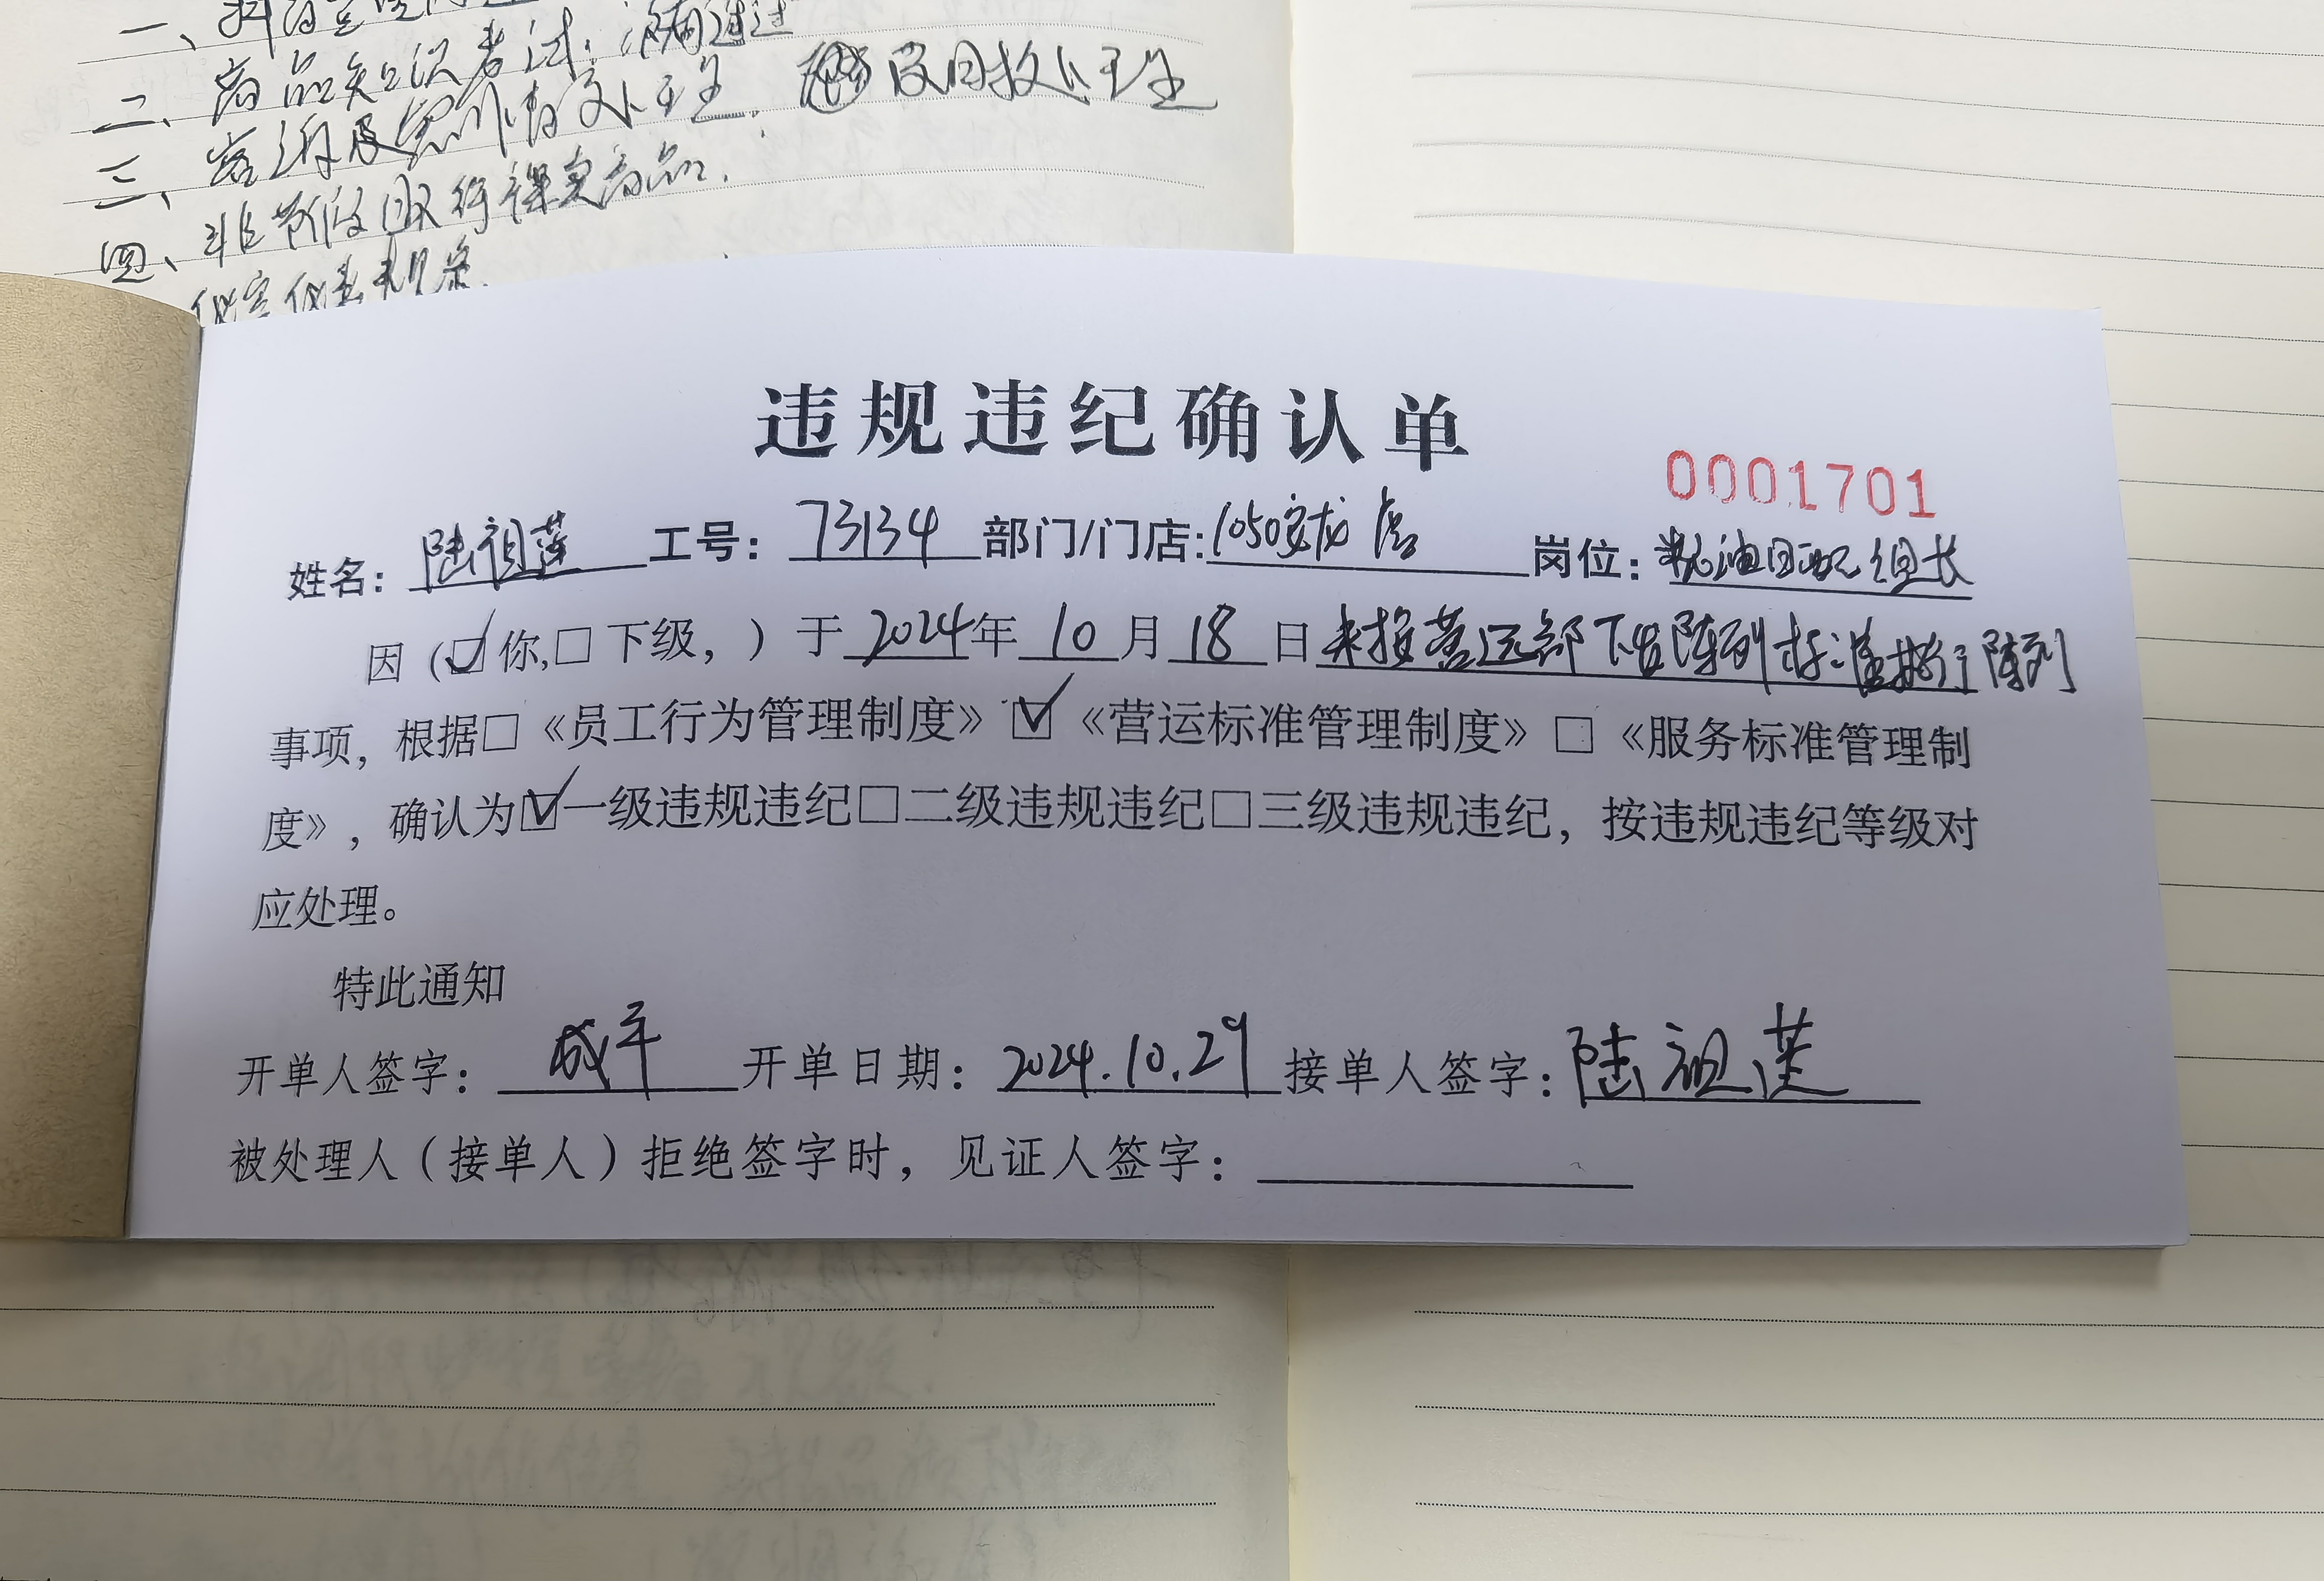 二、商品知识考试:
四、非节假日取得裸卖商品.
违规违纪确认单
0001701
姓名: 陆祖莲 工号: 73134 部门/门店: 1050安龙店 岗位: 粮油日配组长
因 (☑你,□下级, ) 于 2024 年 10 月 18 日 未按营运部下发陈列标准执行陈列
事项, 根据□《员工行为管理制度》☑《营运标准管理制度》□《服务标准管理制
度》, 确认为☑一级违规违纪□二级违规违纪□三级违规违纪, 按违规违纪等级对
应处理。
特此通知
开单人签字: 开单日期: 2024.10.29 接单人签字: 陆祖莲
被处理人(接单人)拒绝签字时, 见证人签字: